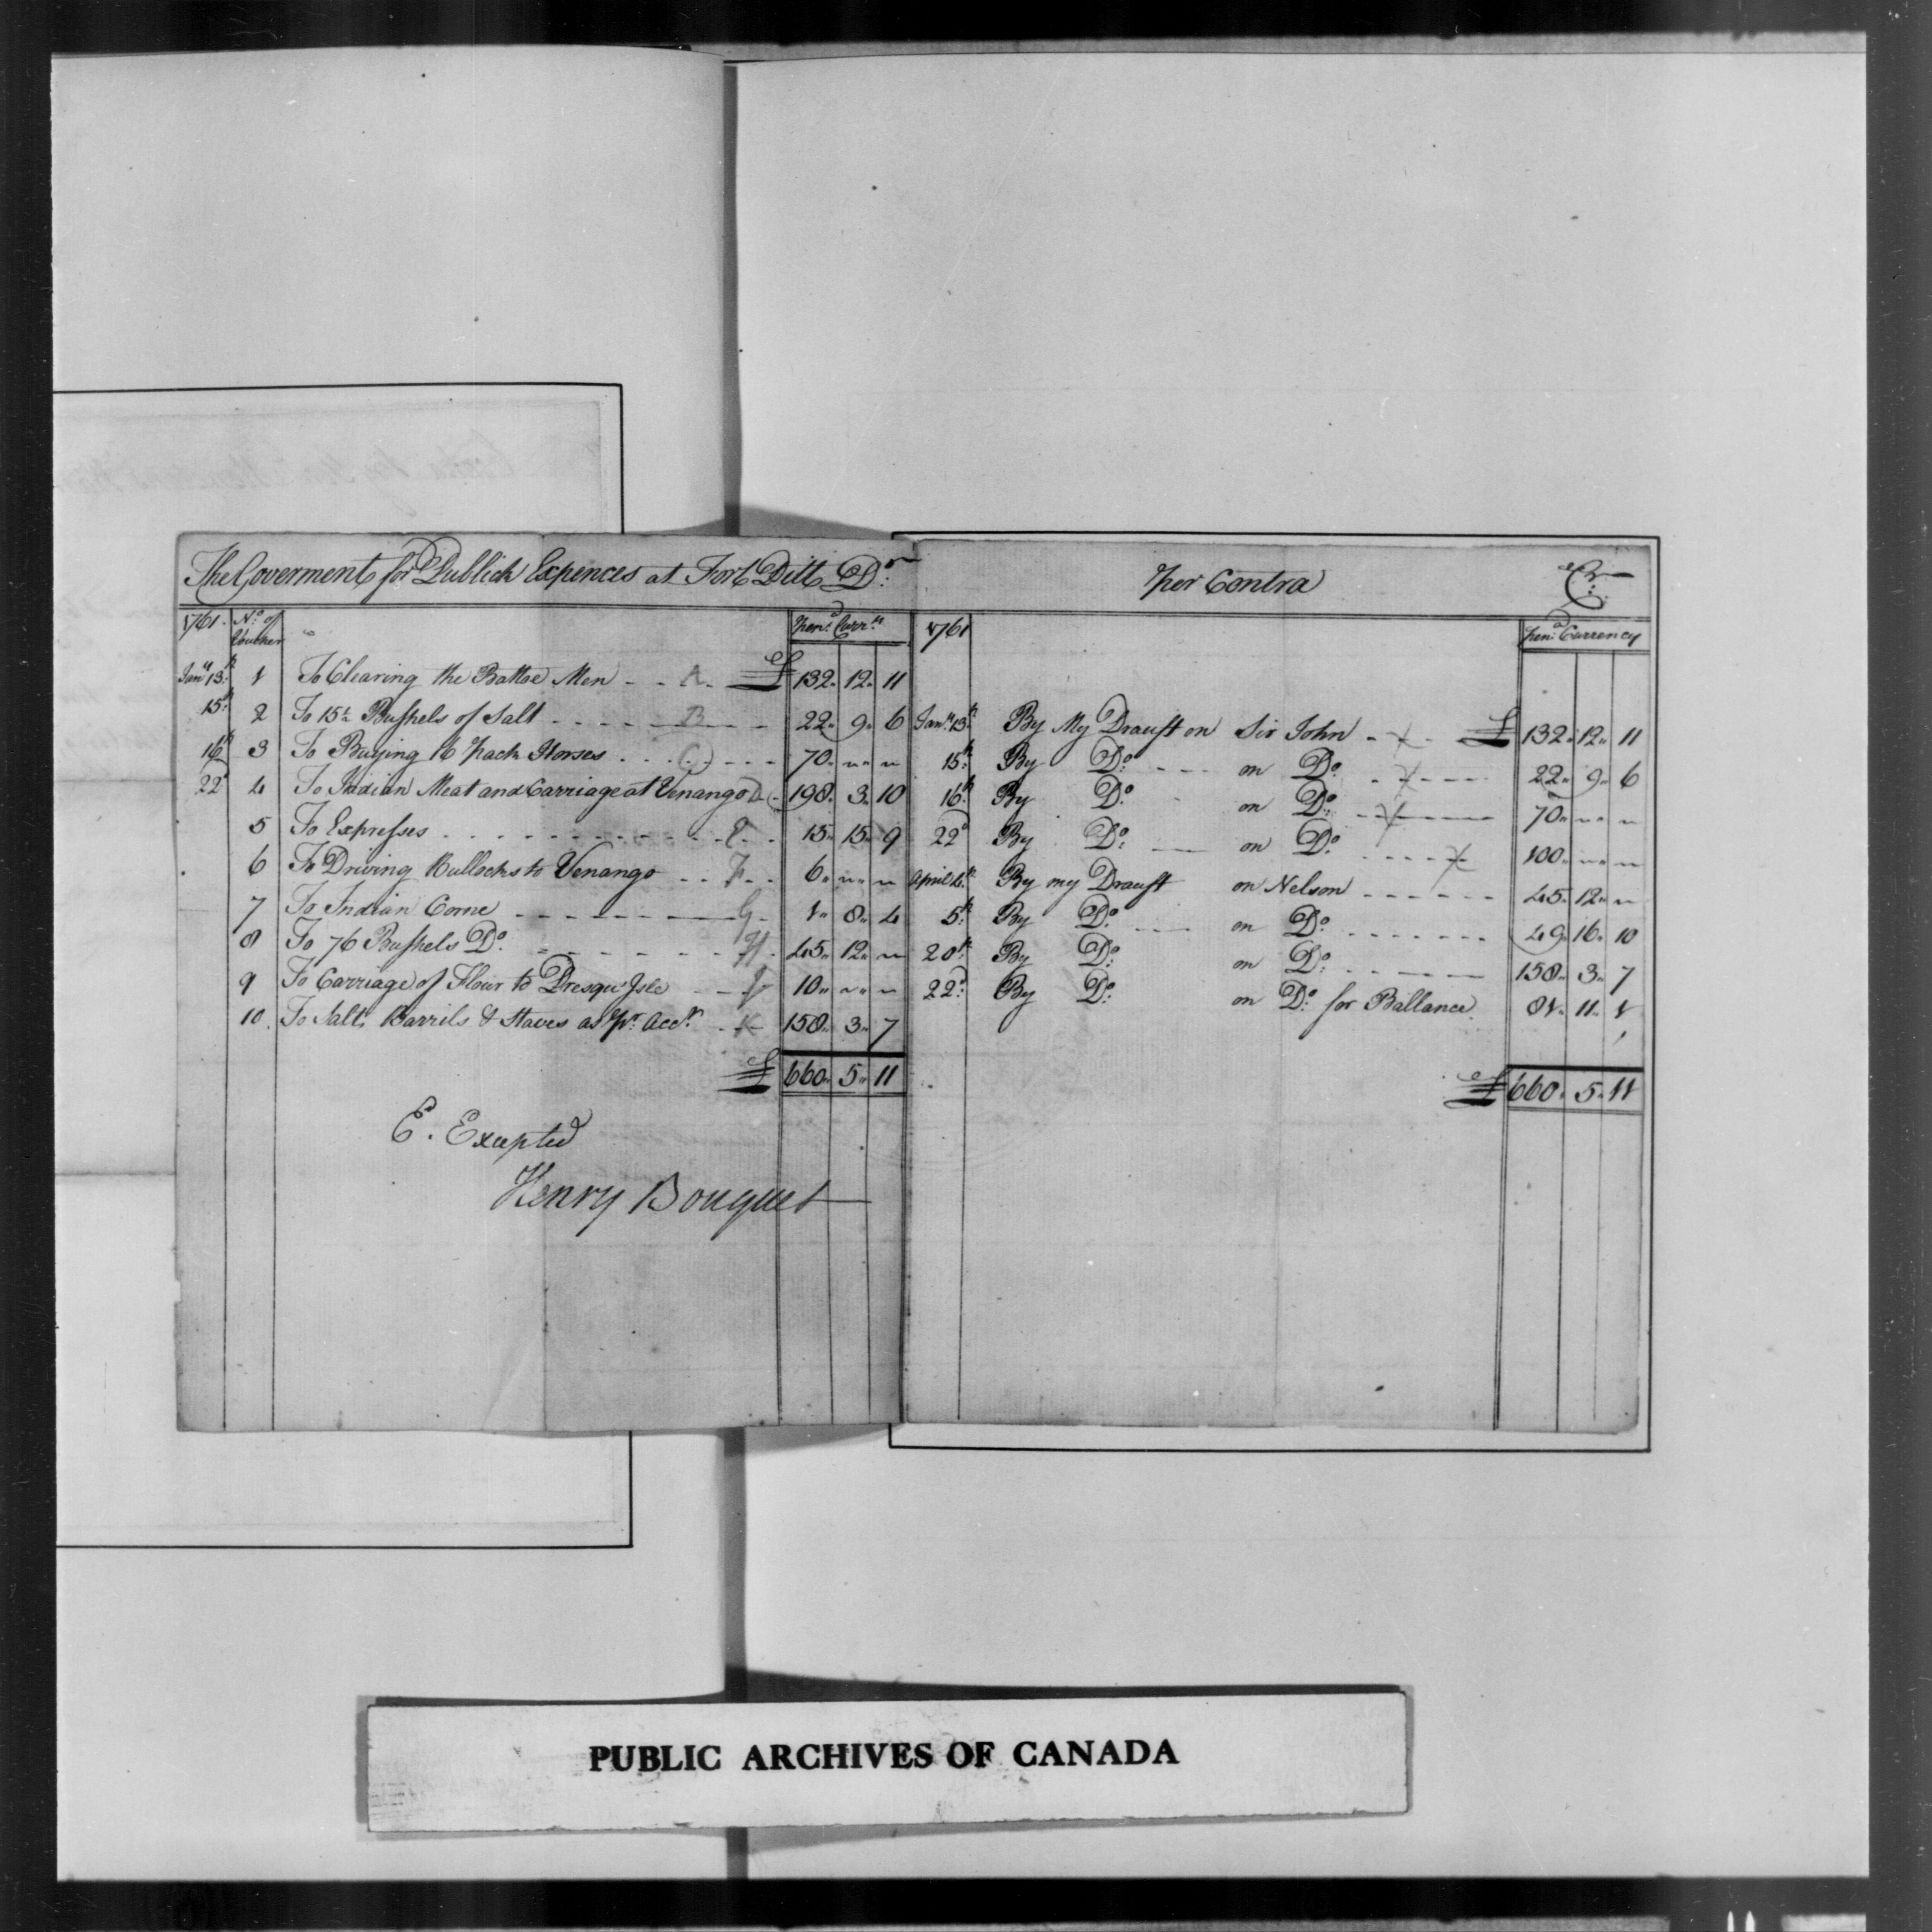 The Goverment for Publick Expences at Fort Pitt Dr.
1761. No. of Voucher Pens. Curry.
Jany 13th 1 To Clearing the Battoe Men - - A - £ 132" 12" 11
15th 2 To 15½ Bushels of Salt - - - - B - - 22" 9" 6
16th 3 To Buying 16 Pack Horses . . . C - - - 70" " "
22d 4 To Indian Meat and Carriage at Venango D - 198" 3" 10
5 To Expresses - - - - E - - 15" 15" 9
6 To Driving Bullocks to Venango - - F - - 6" " "
7 To Indian Corne - - - - G - 1" 8" 4
8 To 76 Bushels Do. - - - - H - 45" 12" "
9 To Carriage of Flour to Presqu'Isle - - I 10" " "
10. To Salt, Barrils & Staves as pr. Acct. - K - 158" 3" 7
£ 660" 5" 11
E. Excepted
Henry Bouquet
per Contra Cr.
1761 Pens. Currency
Jany 13th By My Drauft on Sir John - - £ 132" 12" 11
15th By Do. - - - on Do. - - - 22" 9" 6
16th By Do. - on Do. - - - 70" " "
22d By Do. - - on Do. - - - 100" " "
April 4th By my Drauft on Nelson - - - - - 45" 12" "
5th By Do. - - - on Do. - - - - - 49" 16" 10
20th By Do. on Do. - - - - 158" 3" 7
22d By Do. on Do. for Ballance. 81" 11" 1
£ 660" 5" 11
PUBLIC ARCHIVES OF CANADA